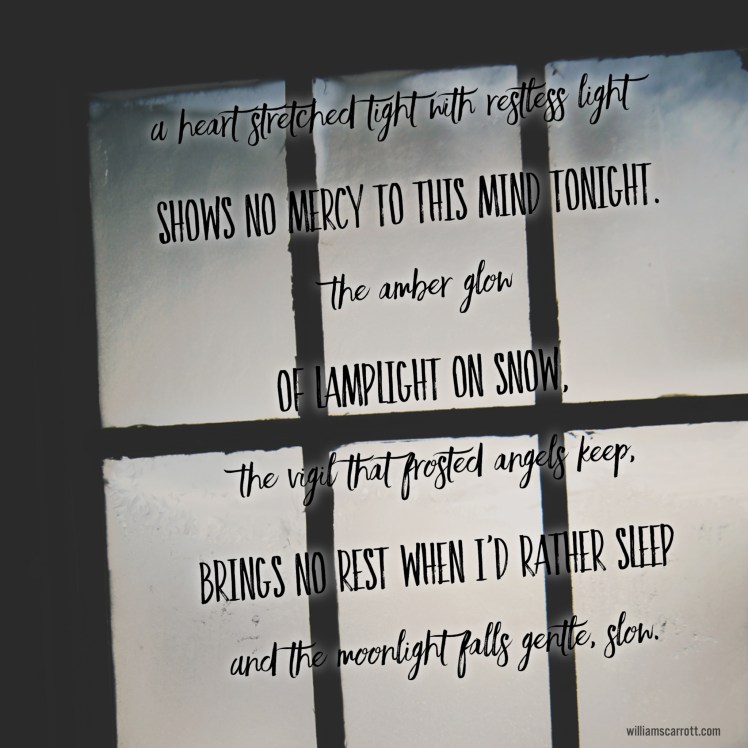 a heart stretched tight with restless light
SHOWS NO MERCY TO THIS MIND TONIGHT.
the amber glow
OF LAMPLIGHT ON SNOW,
the vigil that frosted angels keep,
BRINGS NO REST WHEN I'D RATHER SLEEP
and the moonlight falls gentle, slow.
williamscarrott.com